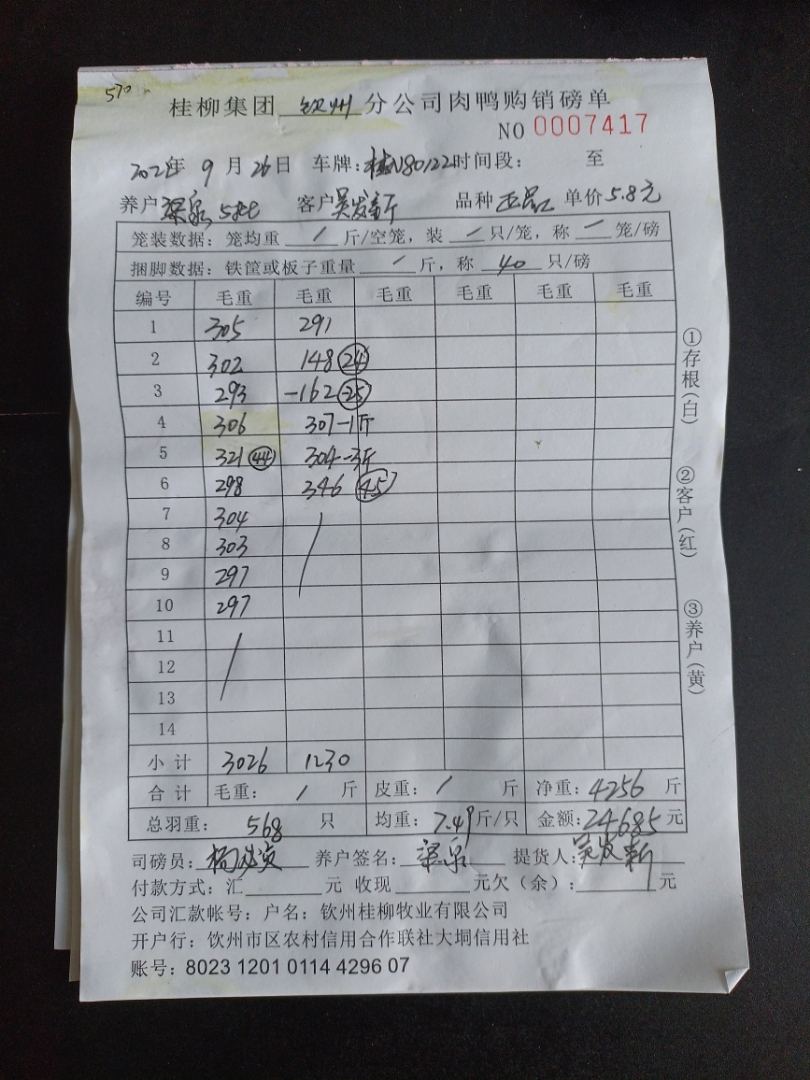 570
桂柳集团 钦州 分公司肉鸭购销磅单
NO 0007417
年 9 月 26 日 车牌: 桂N80122 时间段: 至
养户 梁泉 客户 吴发新 品种 正品 单价 5.8元
笼装数据: 笼均重 / 斤/空笼, 装 一 只/笼, 称 一 笼/磅
捆脚数据: 铁筐或板子重量 / 斤, 称 40 只/磅
编号 毛重 毛重 毛重 毛重 毛重 毛重
1 305 291
2 302 148 24
3 293 -162 -25
4 306 307-1斤
5 321 44 304-3斤
6 298 346 45
7 304
8 303
9 297
10 297
11
12
13
14
小计 3026 1230
合计 毛重: / 斤 皮重: / 斤 净重: 4256 斤
总羽重: 568 只 均重: 7.49 斤/只 金额: 24685 元
司磅员: 养户签名: 梁泉 提货人: 吴发新
付款方式: 汇 元 收现 元欠(余): 元
公司汇款帐号: 户名: 钦州桂柳牧业有限公司
开户行: 钦州市区农村信用合作联社大垌信用社
账号: 8023 1201 0114 4296 07
①存根(白)
②客户(红)
③养户(黄)